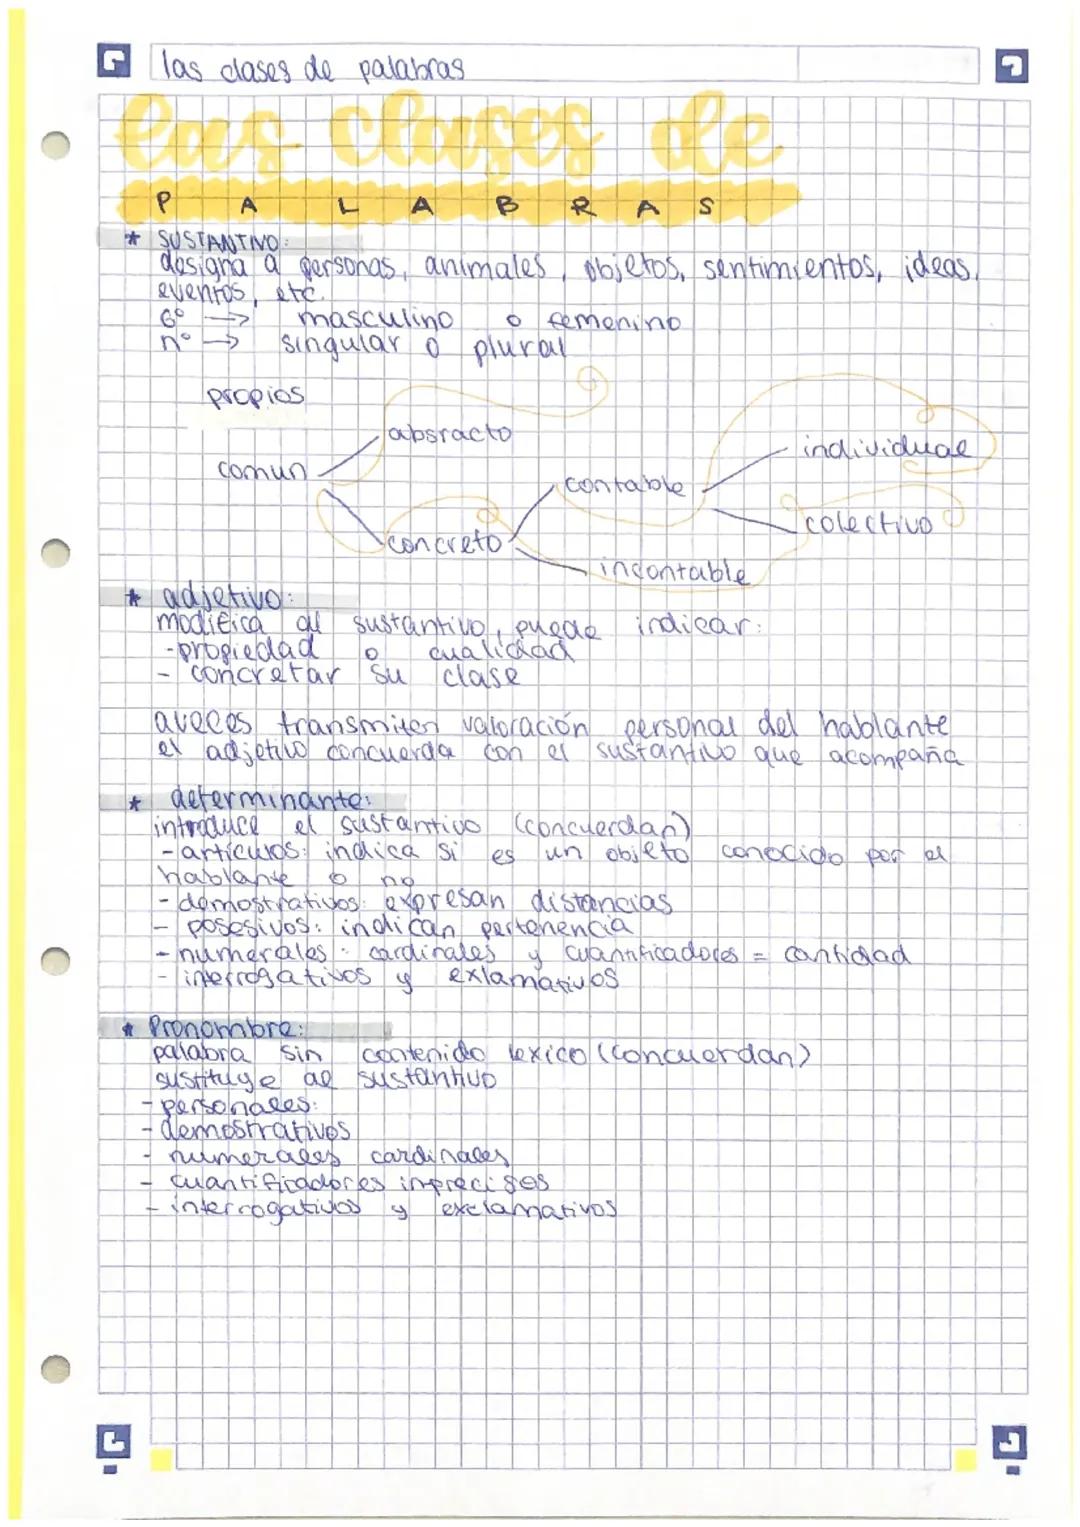 las clases de palabras
las clases de
PALABRAS
* SUSTANTIVO:
designa a personas, animales, objetos, sentimientos, ideas,
eventos, etc.
Gº → masculino o femenino
nº → singular o plural
propios
absracto
individual
comun
contable
colectivo
concreto
incontable
* adjetivo:
modifica al sustantivo, puede indicar:
-propiedad o cualidad
- concretar su clase
aveces transmiten valoración personal del hablante
el adjetivo concuerda con el sustantivo que acompaña
* determinante:
introduce el sustantivo (concuerdan)
-artículos: indica si es un objeto conocido por el
hablante o no
-demostrativos: expresan distancias
- posesivos: indican pertenencia
-numerales: cardinales y cuantificadores = cantidad
- interrogativos y exlamativos
* Pronombre:
palabra sin contenido lexico (concuerdan)
sustituye al sustantivo
-personales:
-demostrativos
- numerales cardinales
- cuantificadores imprecisos
- interrogativos y exclamativos